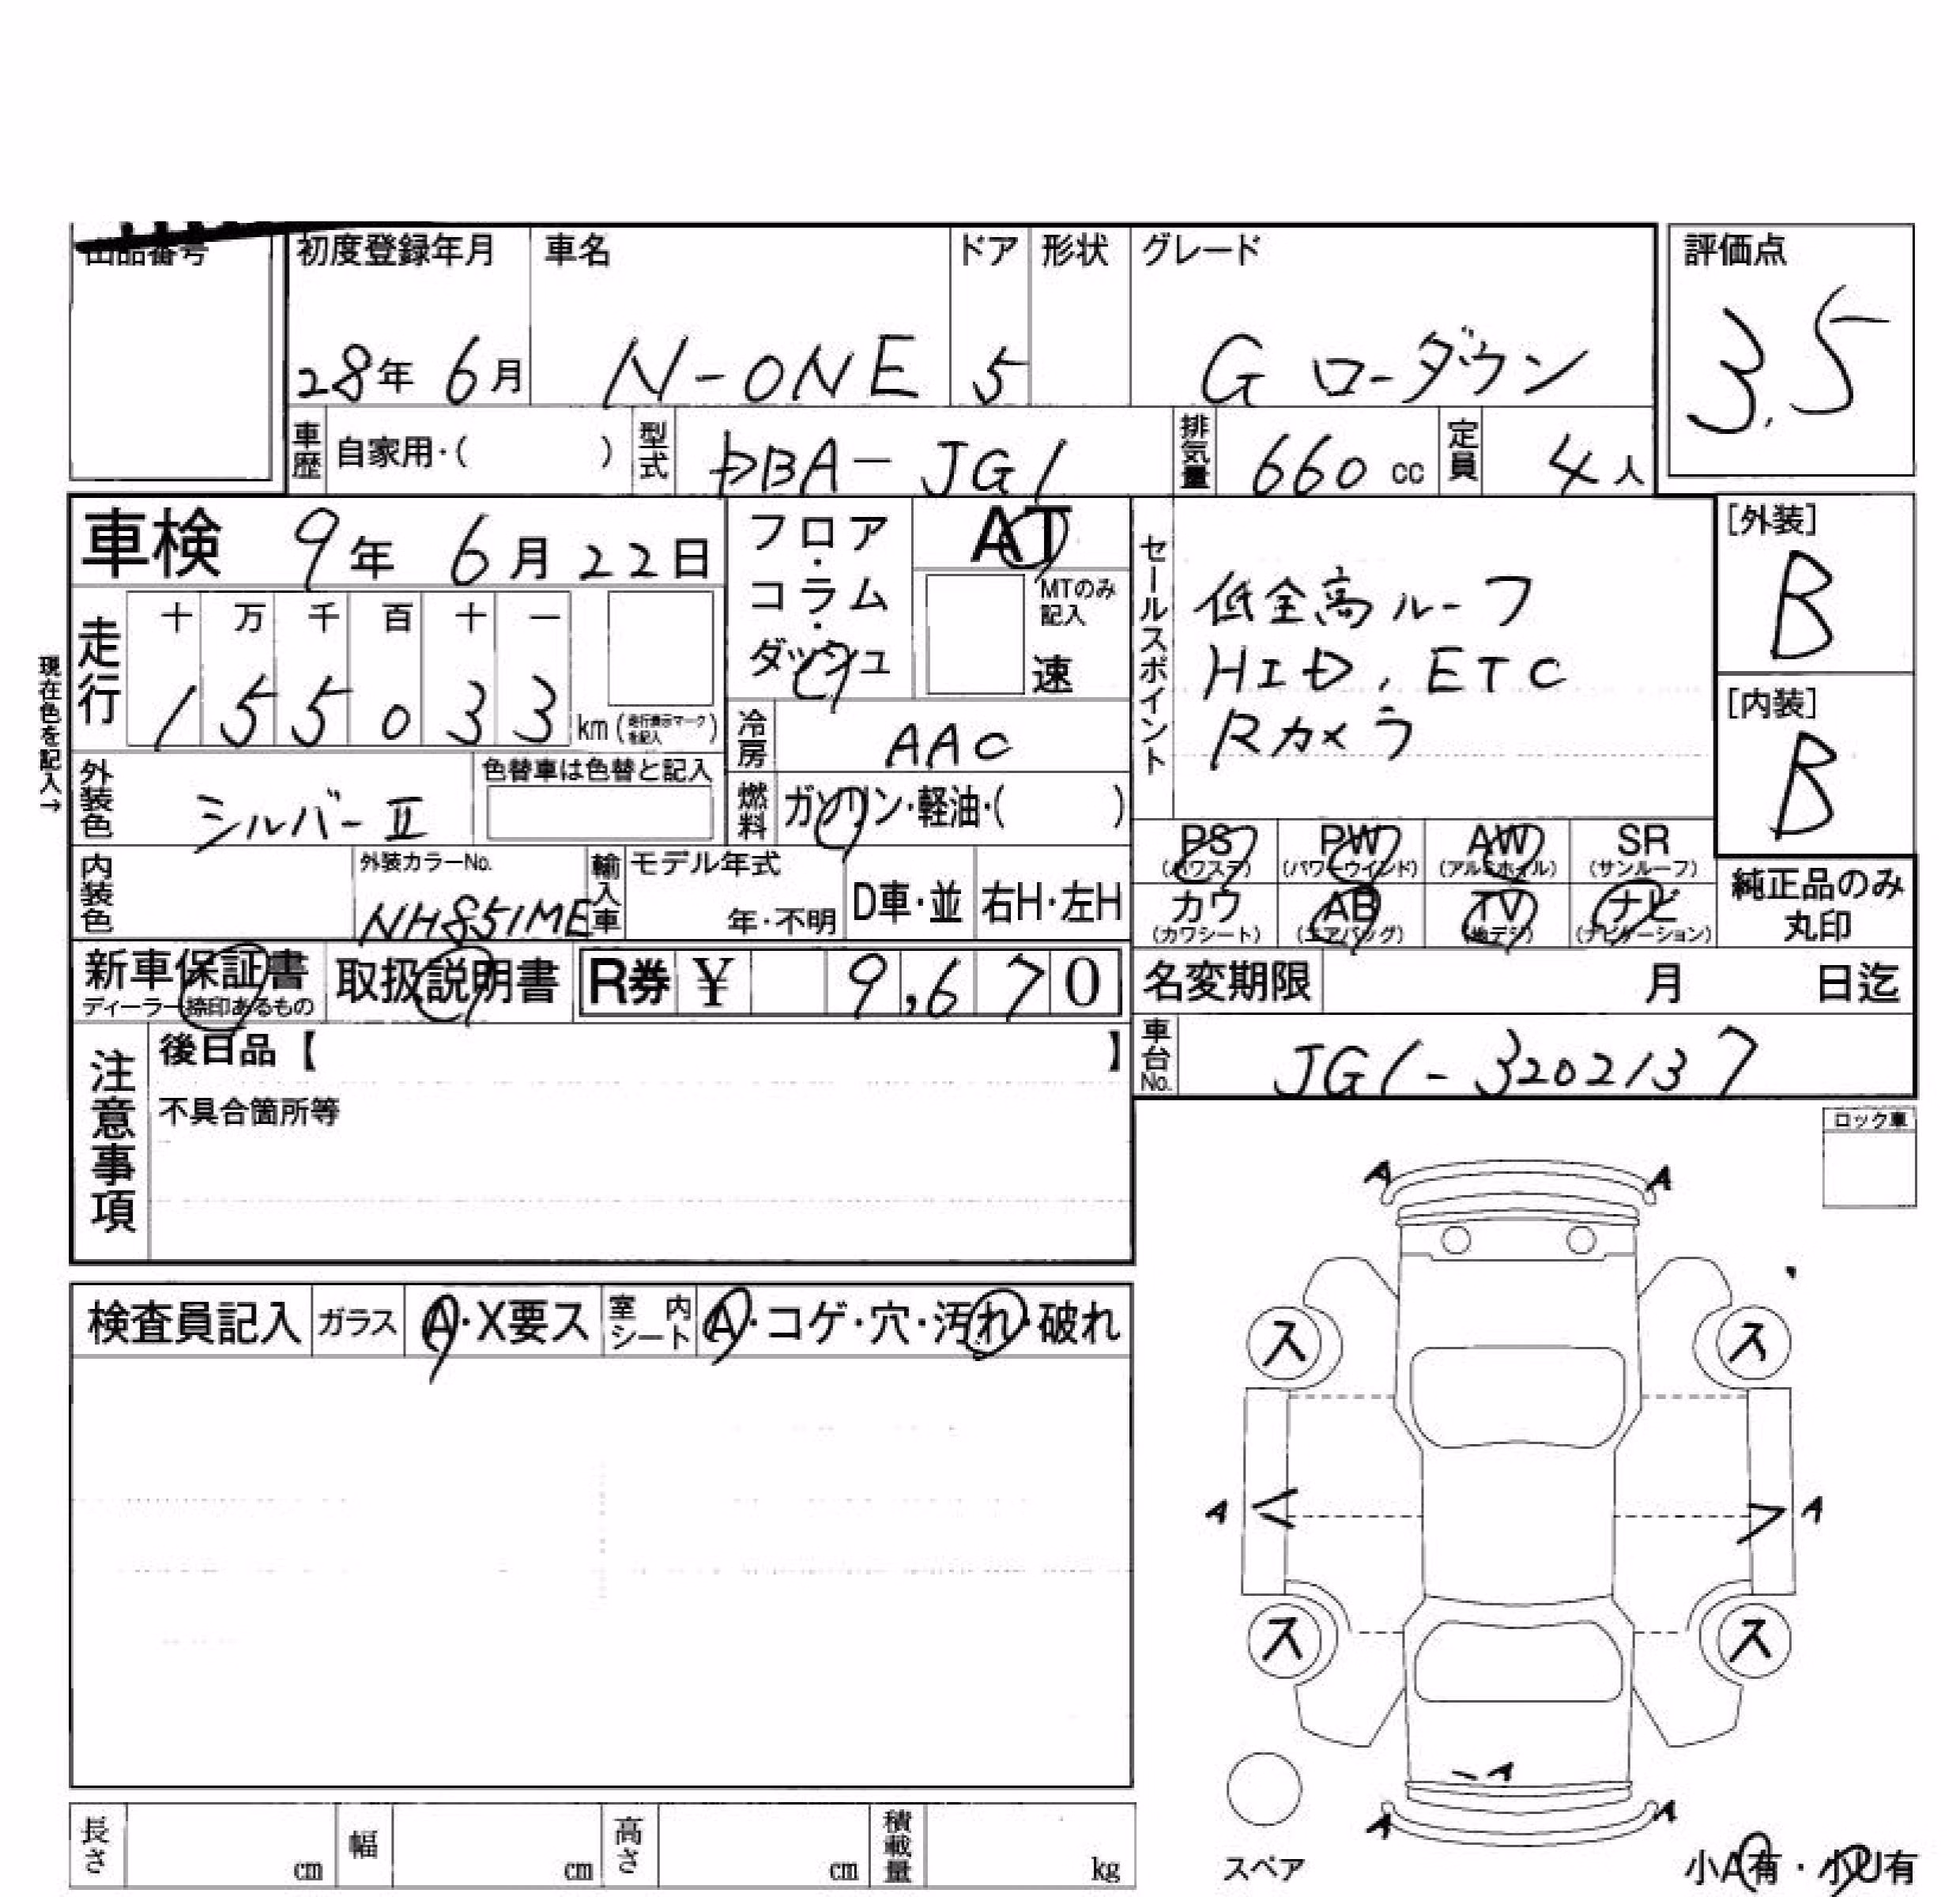 出品番号
初度登録年月 車名 ドア 形状 グレード 評価点
28年 6月 N-ONE 5 G ローダウン 3.5
車歴 自家用・( ) 型式 DBA-JG1 排気量 660 cc 定員 4人
車検 9年 6月 22日
フロア・コラム・ダッシュ
AT
MTのみ記入
速
セールスポイント
低全高ルーフ
HID, ETC
Rカメラ
[外装]
B
[内装]
B
現在色を記入→
走行 十 万 千 百 十 一
1 5 5 0 3 3 km (走行表示マークを記入)
冷房 AAC
外装色 シルバーII 色替車は色替と記入
燃料 ガソリン・軽油・( )
PS (パワステ) PW (パワーウインド) AW (アルミホイル) SR (サンルーフ)
カワ (カワシート) AB (エアバッグ) TV (地デジ) ナビ (ナビゲーション)
純正品のみ丸印
内装色 外装カラーNo. NH851ME 輸入車 モデル年式 年・不明 D車・並 右H・左H
新車保証書 ディーラー捺印あるもの 取扱説明書 R券 ¥ 9,670
名変期限 月 日迄
車台No. JG1-3202137
注意事項
後日品【 】
不具合箇所等
ロック車
検査員記入 ガラス A・X要ス 室内シート A・コゲ・穴・汚れ・破れ
A A
ス ス
A A
ス ス
A
A A
スペア
小A有・小U有
長さ cm 幅 cm 高さ cm 積載量 kg